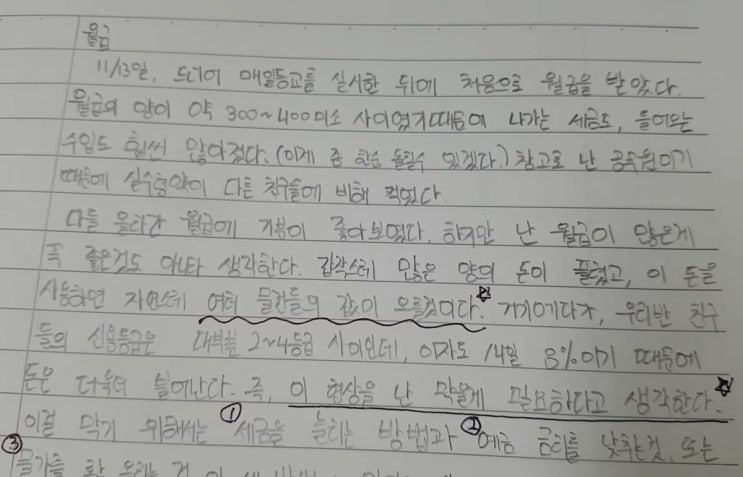 월급
11/13일, 드디어 매일등교를 실시한 뒤에 처음으로 월급을 받았다.
월급의 양이 약 300~400미소 사이였기때문에 나가는 세금도, 들어오는
수입도 훨씬 많아졌다. (이제 좀 한숨 돌릴수 있겠다.) 참고로 난 공무원이기
때문에 실수령액이 다른 친구들에 비해 적었다.
다들 올라간 월급에 기분이 좋아보였다. 하지만 난 월급이 많은게
꼭 좋은것도 아니라 생각한다. 갑작스레 많은 양의 돈이 풀렸고, 이 돈을
사용하면 자연스레 여러 물건들의 값이 오를것이다. 거기에다가, 우리반 친구
들의 신용등급은 대부분 2~4등급 사이인데, 이자도 14일 8%이기 때문에
돈은 더욱더 늘어난다. 즉, 이 현상을 난 막을게 필요하다고 생각한다.
이걸 막기 위해서는 ① 세금을 늘리는 방법과 ② 예금 금리를 낮추는것, 또는
③